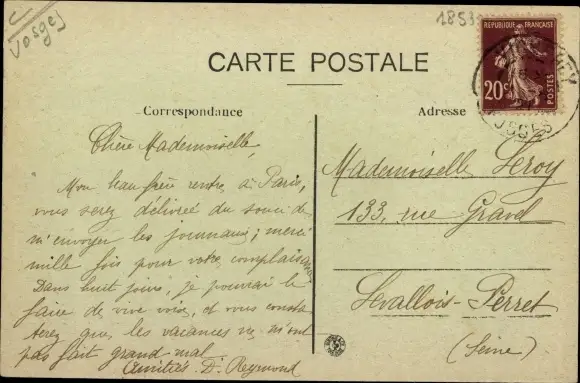 Vosges
1853
RÉPUBLIQUE FRANÇAISE
20c
POSTES
VOSGES
CARTE POSTALE
Correspondance
Adresse
Chère Mademoiselle,
Mon beau frère rentre à Paris,
vous serez délivrée du souci de
m'envoyer les journaux; merci
mille fois pour votre complaisance
Dans huit jours, je pourrai le
faire de vive voix, et vous consta
terez que les vacances ne m'ont
pas fait grand mal
Amitiés. D. Reymond
Mademoiselle Leroy
133, rue Gravel
Levallois-Perret
(Seine)